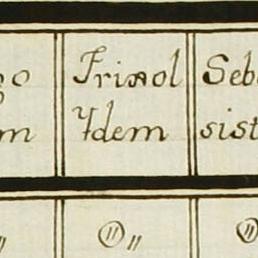 go Frixol Seb
m Ydem sist